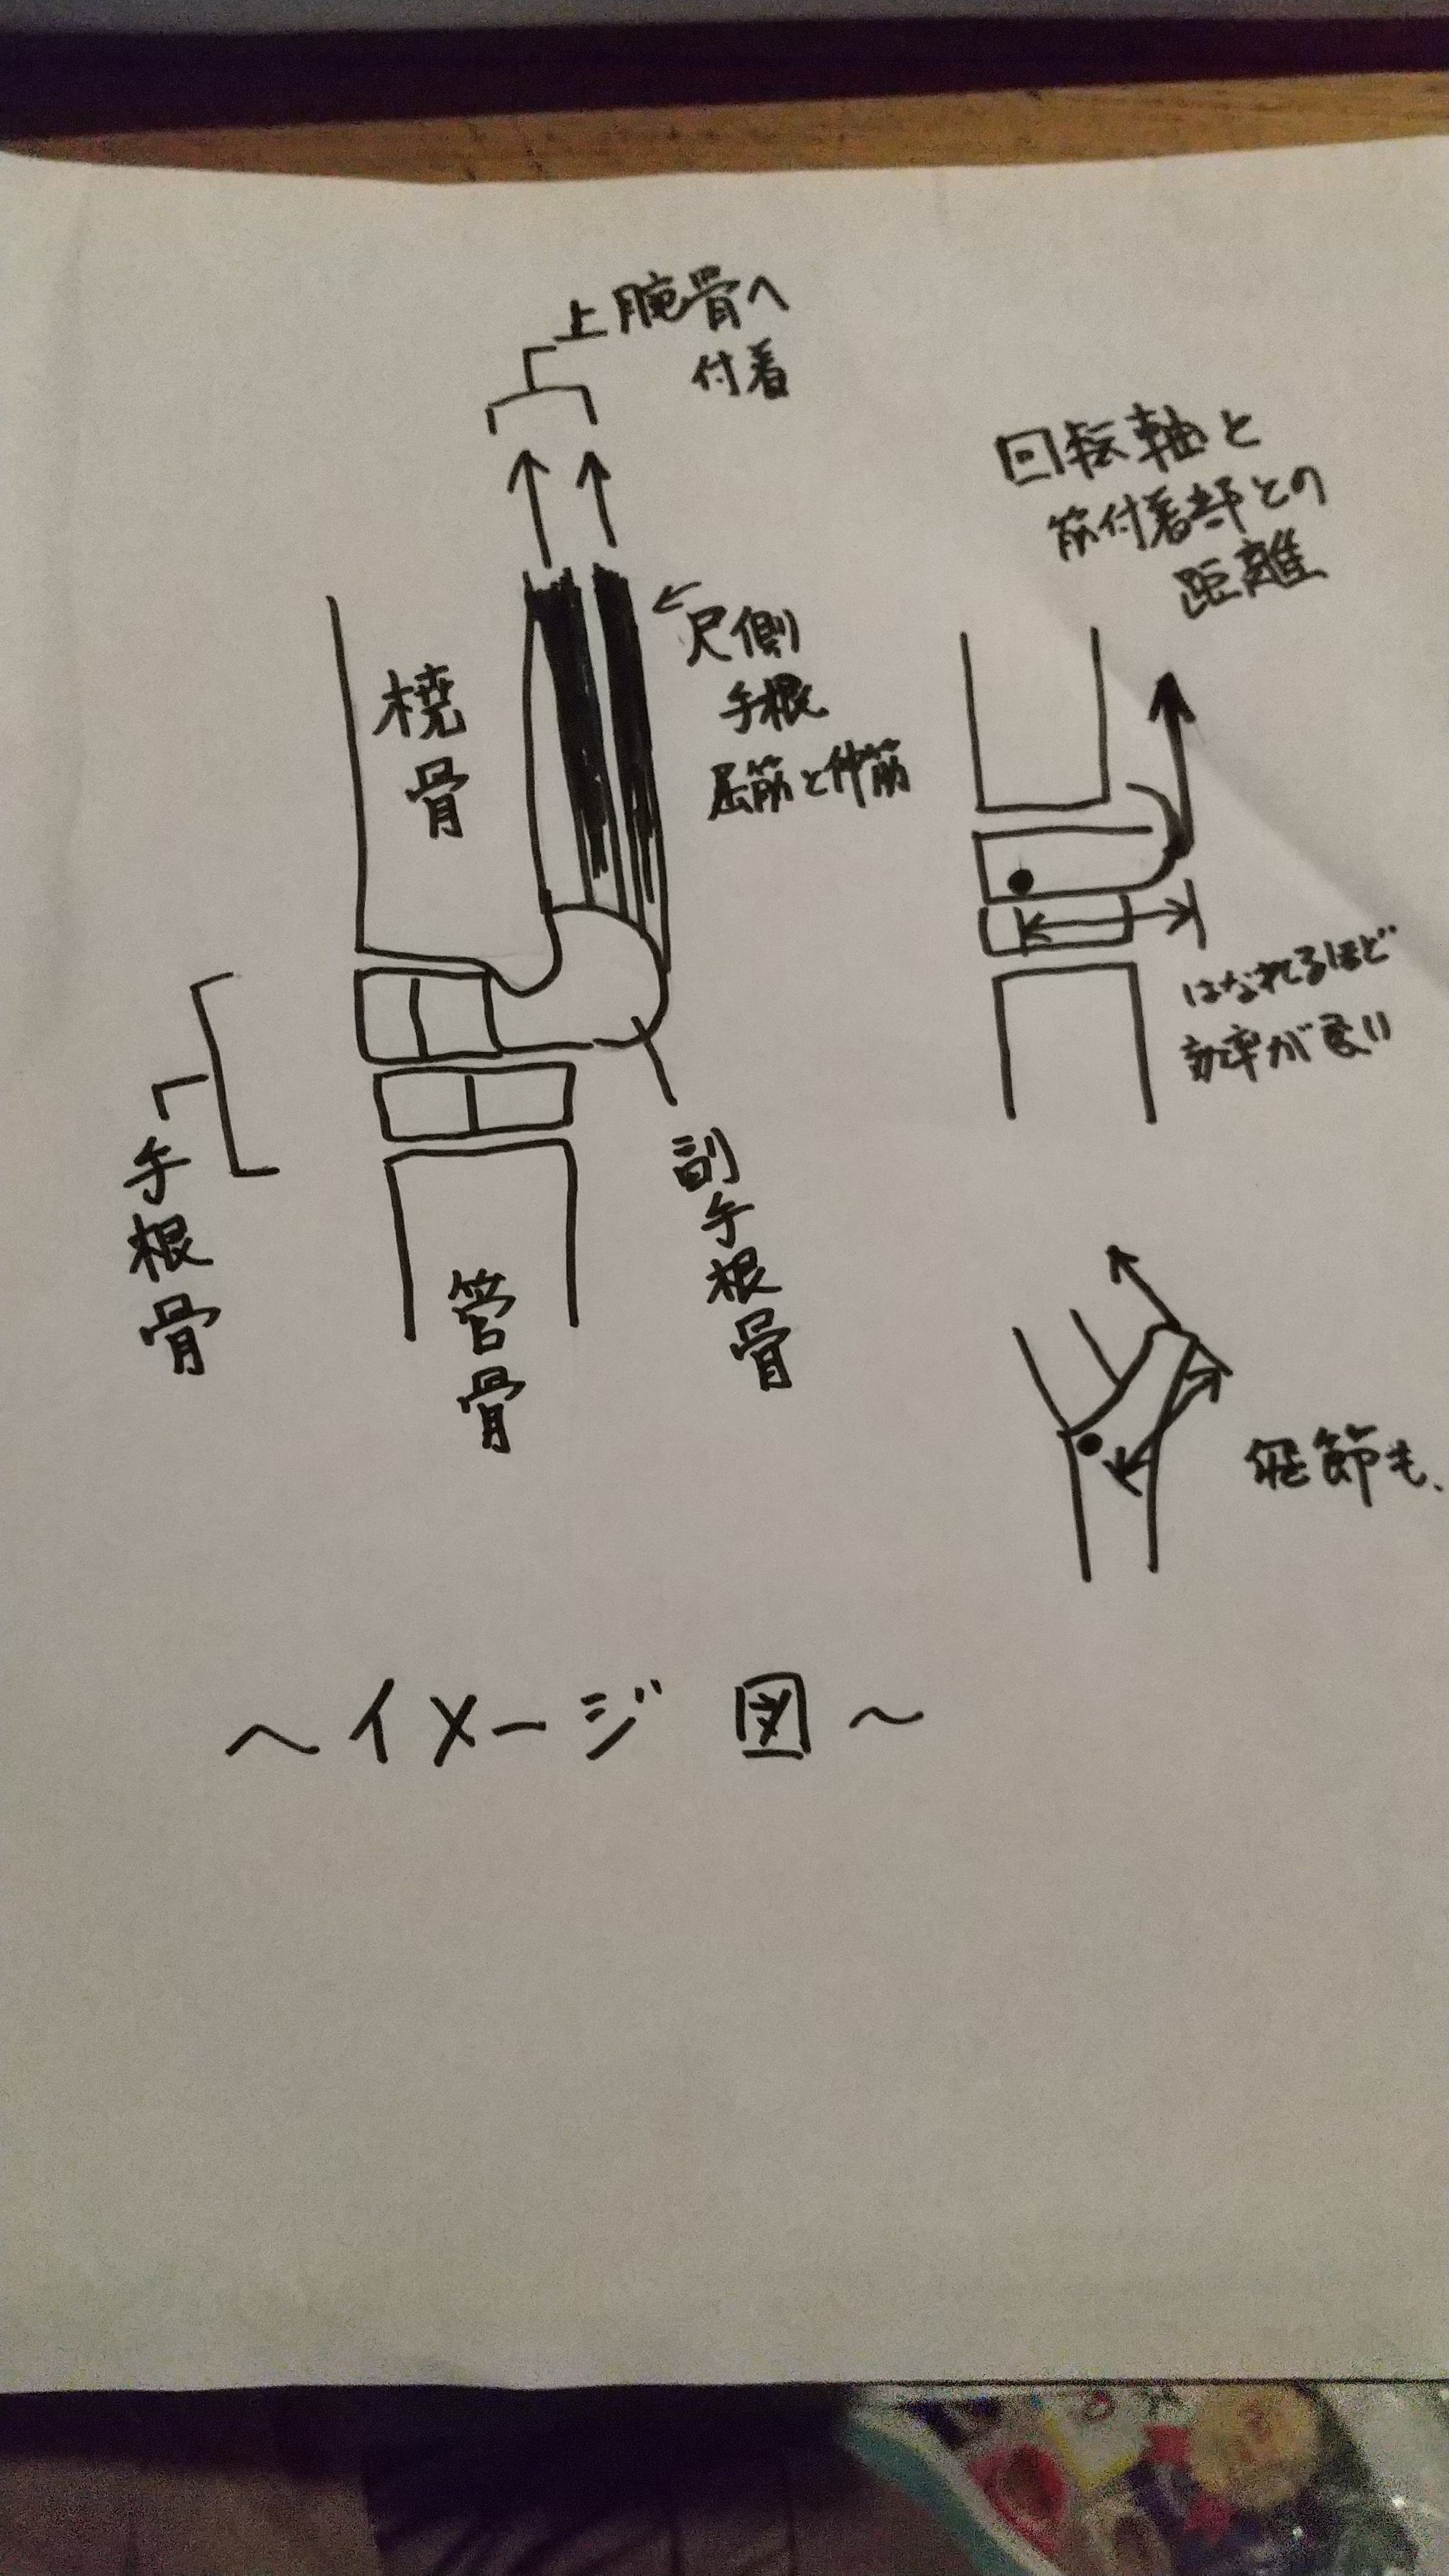 上腕骨へ
付着
回転軸と
筋付着部との
距離
尺側
手根
屈筋と伸筋
橈骨
はなれるほど
効率が良い
手根骨
副手根骨
管骨
飛節も、
~イメージ図~